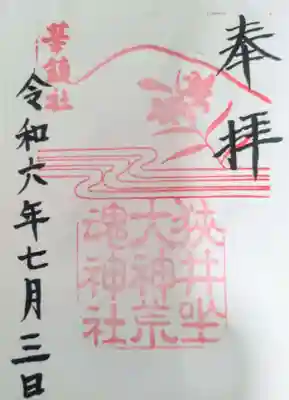 奉拝
華鎮社
狭井坐
大神荒
魂神社
令和六年七月三日